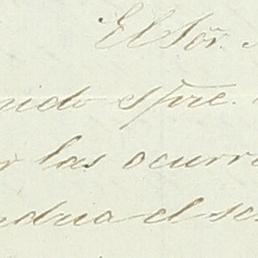 El Sõr.
nido spre.
r las ocurr
ndria el se